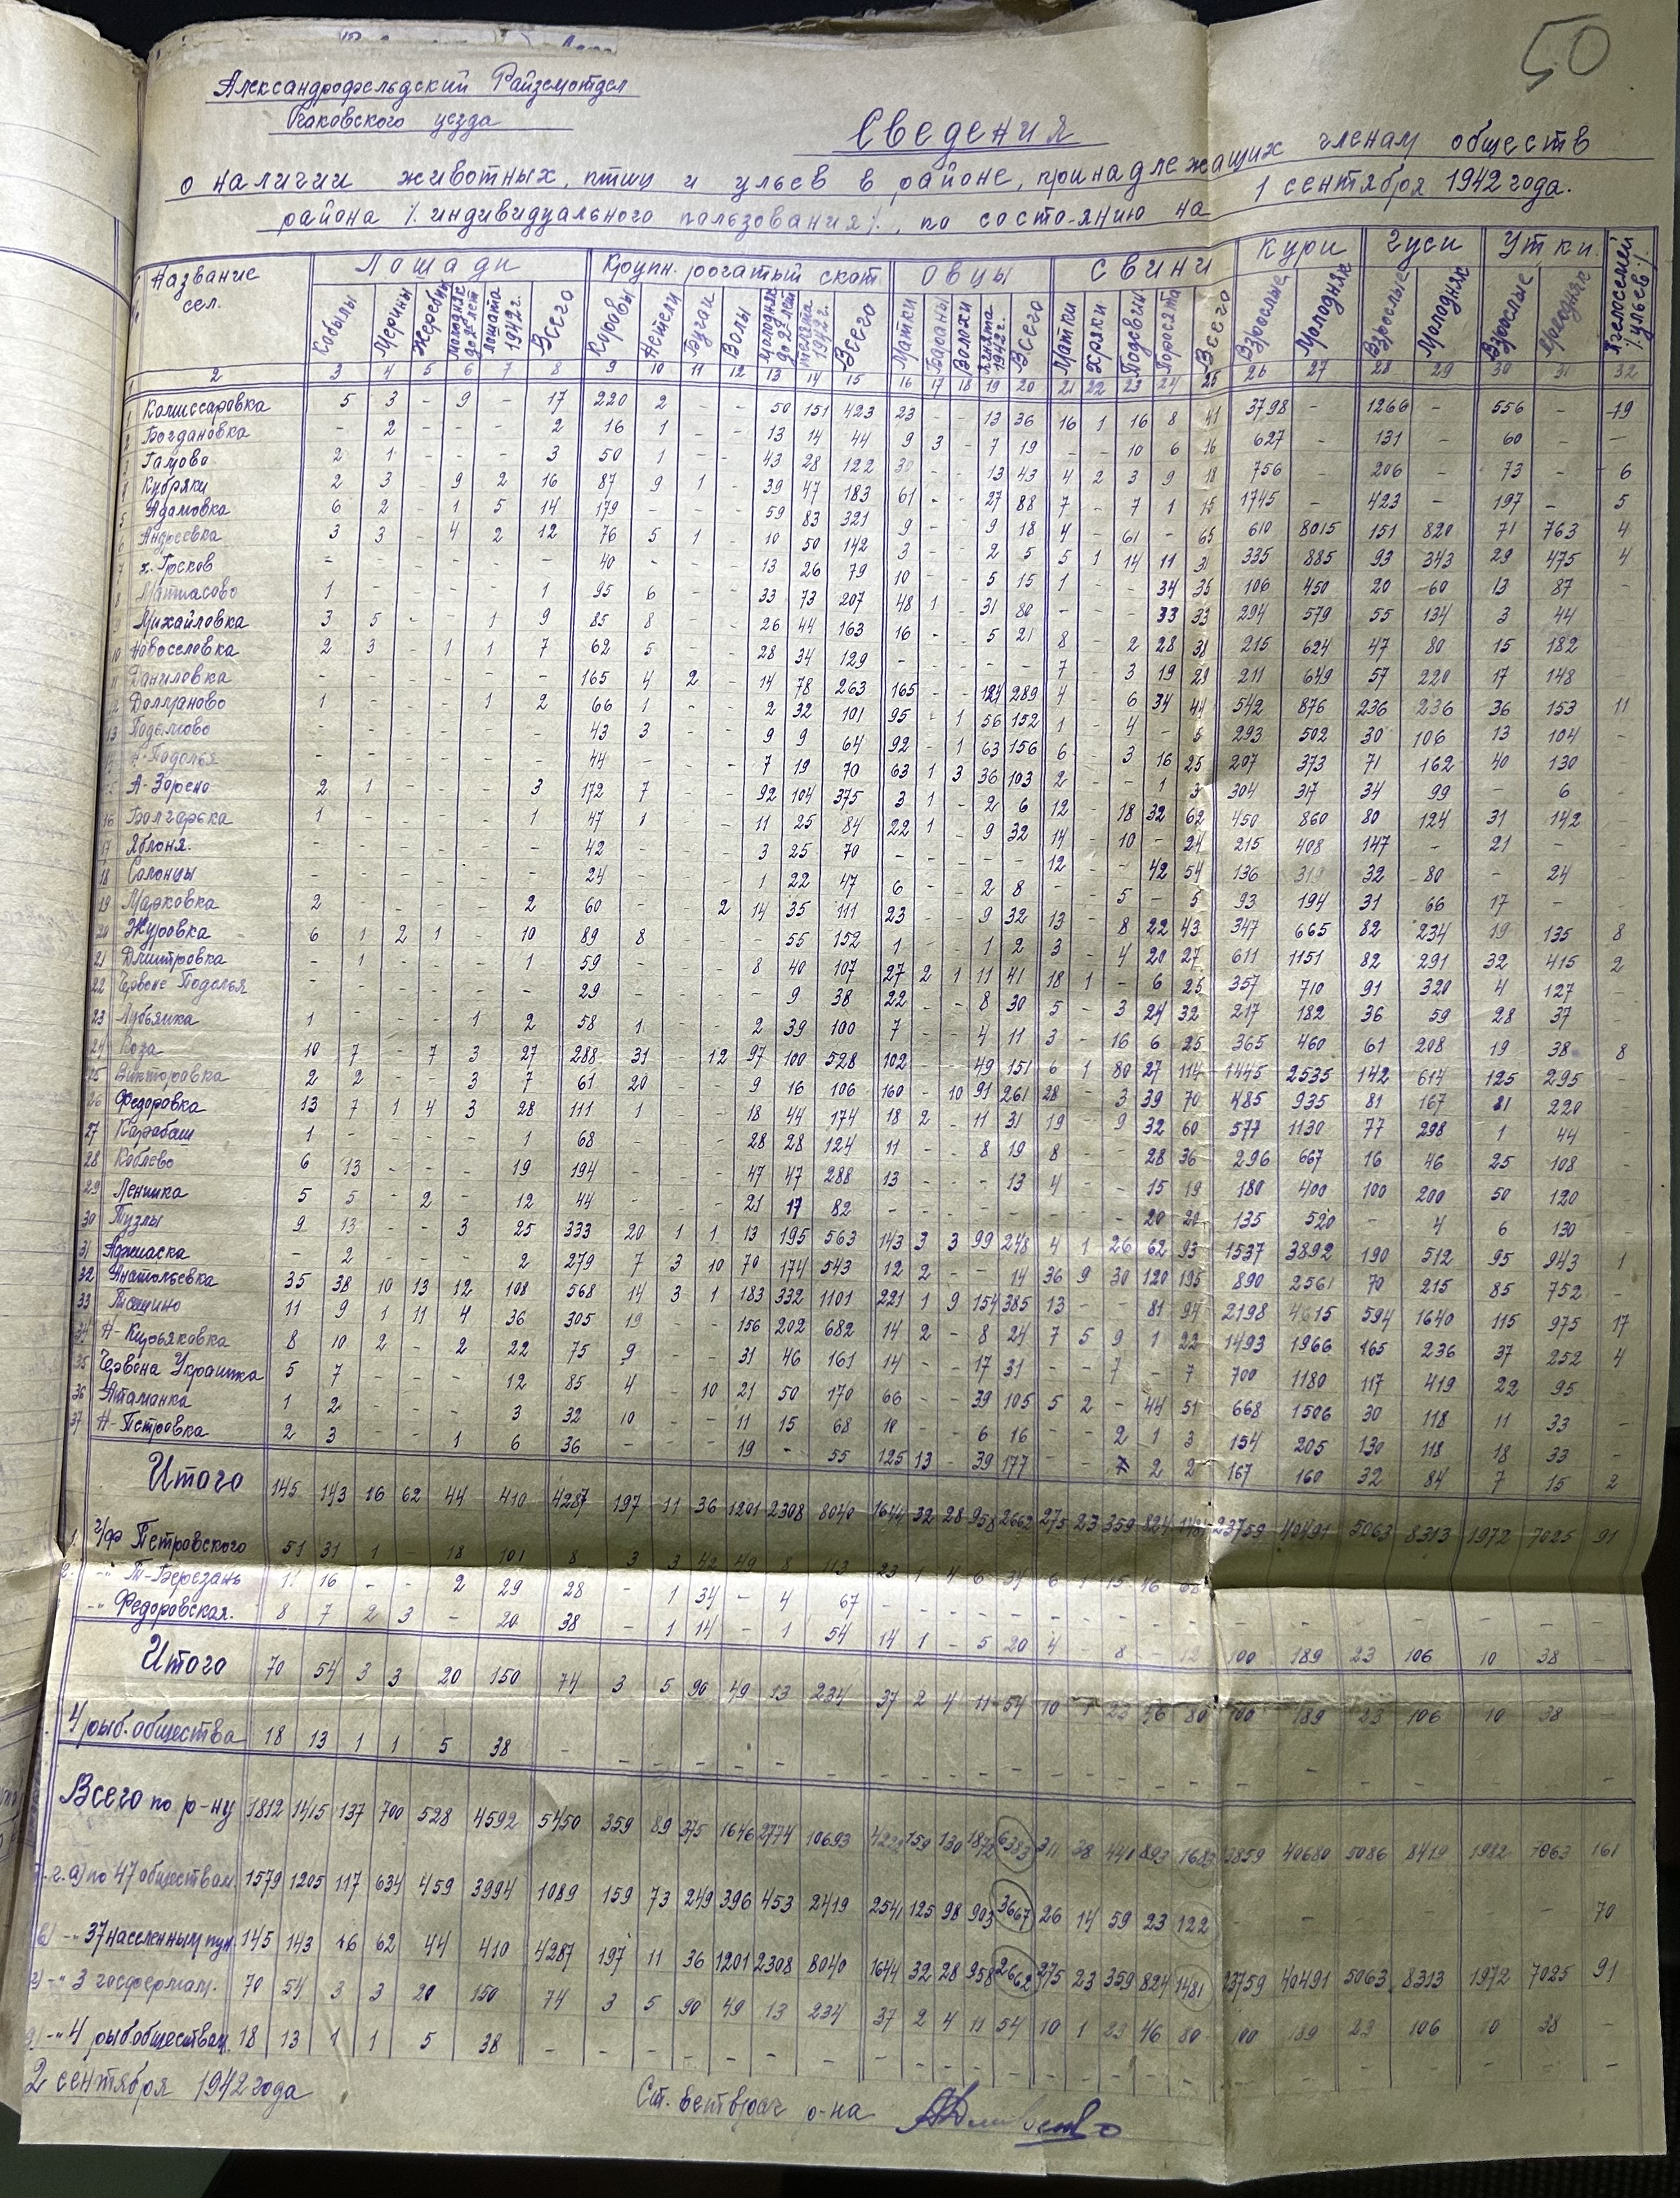 50
Александрофельдский Райземотдел
Очаковского уезда
Сведения
о наличии животных, птиц и ульев в районе, принадлежащих членам обществ
района /. индивидуального пользования /., по состо-янию на 1 сентября 1942 года.
Название сел. Лошади Крупн. рогатый скот Овцы Свини Кури Гуси Утки Пчелосемей /ульев/
Кобылы Мерины Жеребцы Молодняк до 2х лет лошата 1942 г. Всего Коровы Нетели Бугаи Волы Молодняк до 2х лет телята 1942 г. Всего Матки Бараны Волохи Ягнята 1942 г. Всего Матки Хряки Подсвин Поросята Всего Взрослые Молодняк Взрослые Молодняк Взрослые
1 2 3 4 5 6 7 8 9 10 11 12 13 14 15 16 17 18 19 20 21 22 23 24 25 26 27 28 29 30 31 32
1 Комиссаровка 5 3 - 9 - 17 220 2 - - 50 151 423 23 - - 13 36 16 1 16 8 41 3798 - 1266 - 556 - 19
2 Богдановка - 2 - - - 2 16 1 - - 13 14 44 9 3 - 7 19 - - 10 6 16 627 - 131 - 60 - -
3 Гамово 2 1 - - - 3 50 1 - - 43 28 122 30 - - 13 43 4 2 3 9 18 756 - 206 - 73 - 6
4 Кубряки 2 3 - 9 2 16 87 9 1 - 39 47 183 61 - - 27 88 7 - 7 1 15 1745 - 423 - 197 - 5
5 Адамовка 6 2 - 1 5 14 179 - - - 59 83 321 9 - - 9 18 4 - 61 - 65 610 8015 151 820 71 763 4
6 Андреевка 3 3 - 4 2 12 76 5 1 - 10 50 142 3 - - 2 5 5 1 14 11 31 335 885 93 343 29 475 4
7 х. Грсков - - - - - - 40 - - - 13 26 79 10 - - 5 15 1 - - 34 35 106 450 20 60 13 87 -
8 Матиасово 1 - - - - 1 95 6 - - 33 73 207 48 1 - 31 80 - - - 33 33 294 579 55 134 3 44
9 Михайловка 3 5 - - 1 9 85 8 - - 26 44 163 16 - - 5 21 8 - 2 28 38 215 624 47 80 15 182
10 Новоселевка 2 3 - 1 1 7 62 5 - - 28 34 129 - - - - - 7 - 3 19 29 211 649 57 220 17 148
11 Даниловка - - - - - - 165 4 2 - 14 78 263 165 - - 124 289 4 - 6 34 44 542 876 236 236 36 153 11
12 Долманово 1 - - - 1 2 66 1 - - 2 32 101 95 - 1 56 152 1 - 4 - 5 293 502 30 106 13 104 -
13 Подымово - - - - - - 43 3 - - 9 9 64 92 - 1 63 156 6 - 3 16 25 207 373 71 162 40 130
14 Н-Подолья - - - - - - 44 - - - 7 19 70 63 1 3 36 103 2 - - 1 3 304 317 34 99 - 6 -
15 А-Зорено 2 1 - - - 3 172 7 - - 92 104 375 3 1 - 2 6 12 - 18 32 62 450 860 80 124 31 142
16 Болгарька 1 - - - - 1 47 1 - - 11 25 84 22 1 - 9 32 14 - 10 - 24 215 408 147 - 21 -
17 Яблоня. - - - - - - 42 - - - 3 25 70 - - - - - 12 - - 42 54 136 318 32 80 - 24
18 Солонцы - - - - - - 24 - - - 1 22 47 6 - - 2 8 - - 5 - 5 93 194 31 66 17 - -
19 Марковка 2 - - - - 2 60 - - 2 14 35 111 23 - - 9 32 13 - 8 22 43 347 665 82 234 19 135 8
20 Журовка 6 1 2 1 - 10 89 8 - - - 55 152 1 - - 1 2 3 - 4 20 27 611 1151 82 291 32 415 2
21 Дмитровка - 1 - - - 1 59 - - - 8 40 107 27 2 1 11 41 18 1 - 6 25 357 710 91 320 4 127
22 Червоне Подолья - - - - - - 29 - - - - 9 38 22 - - 8 30 5 - 3 24 32 217 182 36 59 28 37 -
23 Лубянка 1 - - - 1 2 58 1 - - 2 39 100 7 - - 4 11 3 - 16 6 25 365 460 61 208 19 38 8
24 Роза 10 7 - 7 3 27 288 31 - 12 97 100 528 102 - - 49 151 6 1 80 27 114 1445 2535 142 614 125 295 -
25 Викторовка 2 2 - - 3 7 61 20 - - 9 16 106 160 - 10 91 261 28 - 3 39 70 485 935 81 167 81 220
26 Федоровка 13 7 1 4 3 28 111 1 - - 18 44 174 18 2 - 11 31 19 - 9 32 60 577 1130 77 298 1 44 -
27 Карабаш 1 - - - - 1 68 - - - 28 28 124 11 - - 8 19 8 - - 28 36 296 667 16 46 25 108 -
28 Коблево 6 13 - - - 19 194 - - - 47 47 288 13 - - - 13 4 - - 15 19 180 400 100 200 50 120
29 Ленинка 5 5 - 2 - 12 44 - - - 21 17 82 - - - - - - - - 20 20 135 520 - 4 6 130
30 Тузлы 9 13 - - 3 25 333 20 1 1 13 195 563 143 3 3 99 248 4 1 26 62 93 1537 3892 190 512 95 943 1
31 Аджиаска - 2 - - - 2 279 7 3 10 70 174 543 12 2 - - 14 36 9 30 120 195 890 2561 70 215 85 752 -
32 Анатольевка 35 38 10 13 12 108 568 14 3 1 183 332 1101 221 1 9 154 385 13 - - 81 94 2198 4615 594 1640 115 975 17
33 Ташино 11 9 1 11 4 36 305 19 - - 156 202 682 14 2 - 8 24 7 5 9 1 22 1493 1966 165 236 37 252 4
34 Н-Курьяковка 8 10 2 - 2 22 75 9 - - 31 46 161 14 - - 17 31 - - 7 - 7 700 1180 117 419 22 95
35 Червона Украинка 5 7 - - - 12 85 4 - 10 21 50 170 66 - - 39 105 5 2 - 44 51 668 1506 30 118 11 33 -
36 Атаманка 1 2 - - - 3 32 10 - - 11 15 68 10 - - 6 16 - - 2 1 3 154 205 130 118 18 33 -
37 Н-Петровка 2 3 - - 1 6 36 - - - 19 - 55 125 13 - 39 177 - - - 2 2 167 160 32 84 7 15 2
Итого 145 143 16 62 44 410 4287 197 11 36 1201 2308 8040 1644 32 28 958 2662 275 23 359 824 1481 23759 40491 5063 8313 1972 7025 91
1. г/ф Петровского 51 31 1 - 18 101 8 3 3 42 49 8 113 23 1 4 6 34 6 1 15 46 68
2. -"- Т-Березань 11 16 - - 2 29 28 - 1 34 - 4 67 - - - - - - - - - - - - - - - - -
-"- Федоровская. 8 7 2 3 - 20 38 - 1 14 - 1 54 14 1 - 5 20 4 - 8 - 12 100 189 23 106 10 38 -
Итого 70 54 3 3 20 150 74 3 5 90 49 13 234 37 2 4 11 54 10 1 23 46 80 100 189 23 106 10 38 -
4 рыб. общества 18 13 1 1 5 38 - - - - - - - - - - - - - - - - - - - - - - - -
Всего по р-ну 1812 1415 137 700 528 4592 5450 359 89 375 1646 2774 10693 4222 159 130 1872 6383 311 38 441 893 1683 23859 40680 5086 8419 1982 7063 161
в т.ч. а) по 47 обществам 1579 1205 117 634 459 3994 1089 159 73 249 396 453 2419 2541 125 98 903 3667 26 14 59 23 122 - - - - - - 70
б) -"- 37 населенным пун. 145 143 16 62 44 410 4287 197 11 36 1201 2308 8040 1644 32 28 958 2662 275 23 359 824 1481 23759 40491 5063 8313 1972 7025 91
в) -"- 3 госфермам. 70 54 3 3 20 150 74 3 5 90 49 13 234 37 2 4 11 54 10 1 23 46 80 100 189 23 106 10 38 -
г) -"- 4 рыбобществам 18 13 1 1 5 38 - - - - - - - - - - - - - - - - - - - - - - - -
2 сентября 1942 года
Ст. ветврач р-на